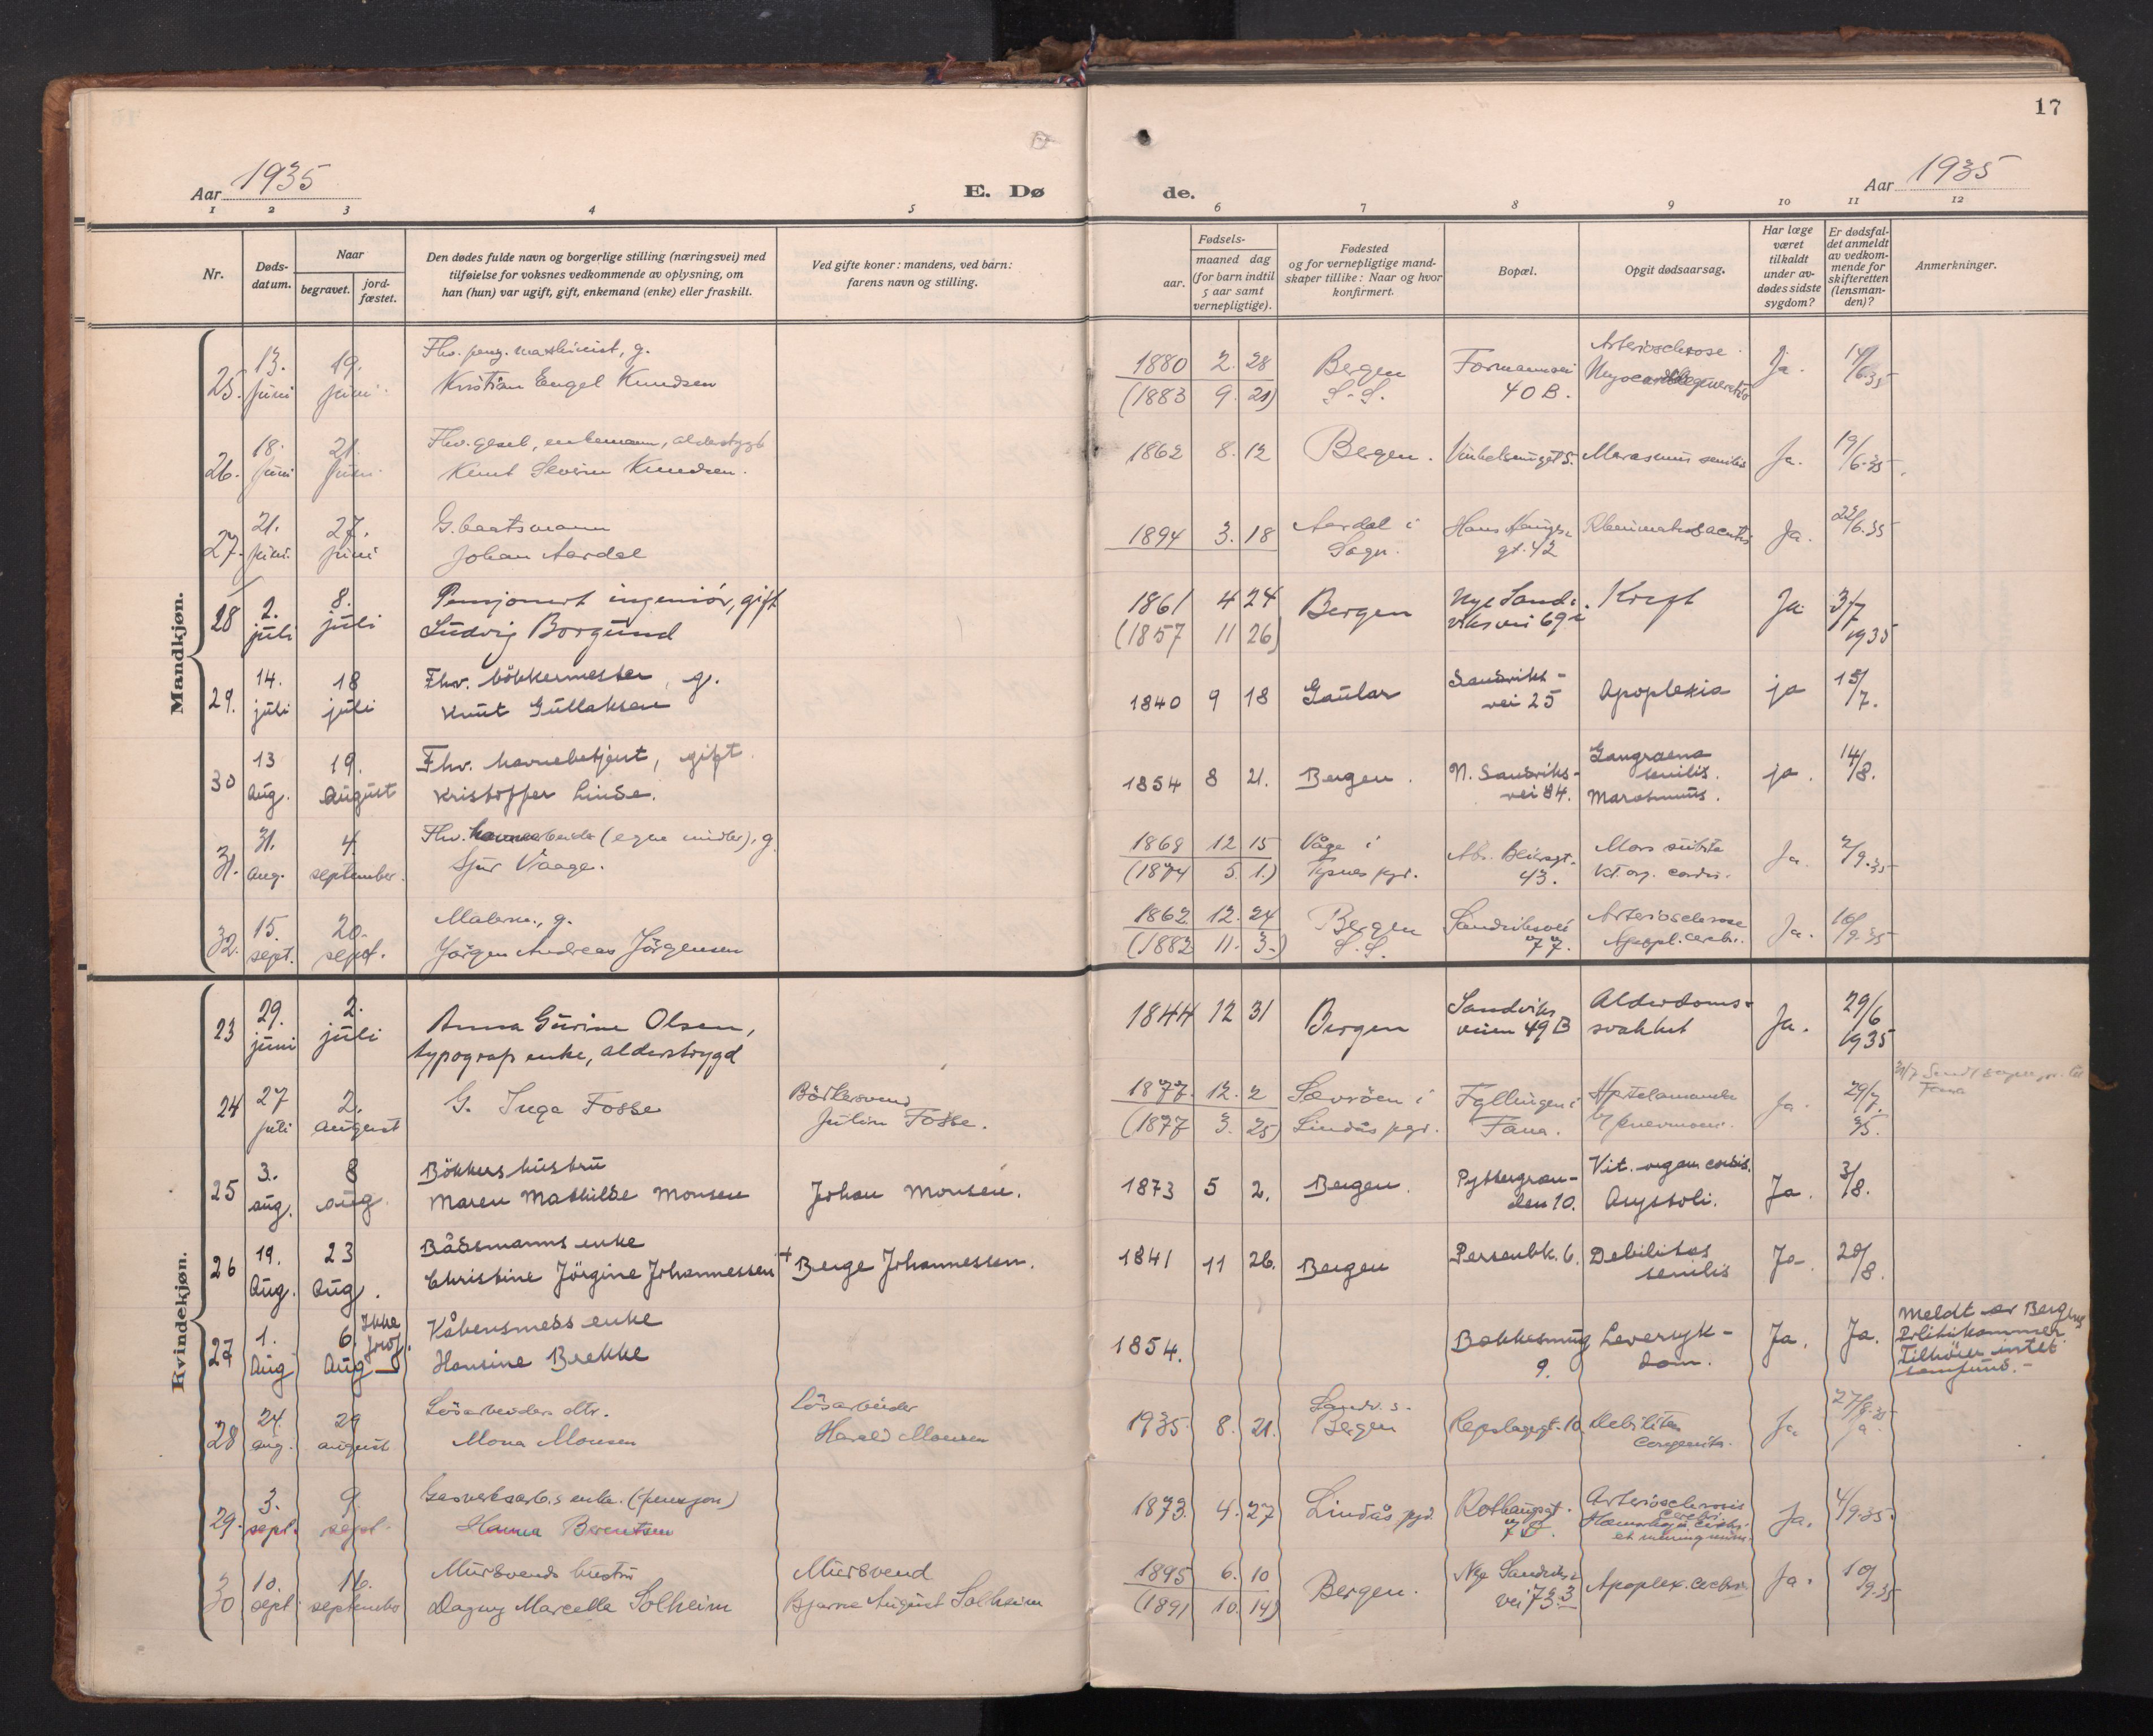 17
Aar 1935
E. Dø
de.
Aar 1935
1 2 3 4 5 6 7 8 9 10 11 12
Nr.
Døds-
datum.
Naar
begravet.
jord-
fæstet.
Den dødes fulde navn og borgerlige stilling (næringsvei) med
tilføielse for voksnes vedkommende av oplysning, om
han (hun) var ugift, gift, enkemand (enke) eller fraskilt.
Ved gifte koner: mandens, ved barn:
farens navn og stilling.
Fødsels-
aar.
maaned dag
(for barn indtil
5 aar samt
vernepligtige).
Fødested
og for vernepligtige mand-
skaper tillike: Naar og hvor
konfirmert.
Bopæl.
Opgit dødsaarsag.
Har læge
været
tilkaldt
under av-
dødes sidste
sygdom?
Er dødsfal-
det anmeldt
av vedkom-
mende for
skifteretten
(lensman-
den)?
Anmerkninger.
Mandkjøn.
25. 13. juni 19. juni
Fhv. maskinist, g.
Kristian Engel Knudsen
1880 2. 28 Bergen
(1883 9. 21) S.S.
Formannsvei
40 B.
Arteriosclerose
Ja. 14/6.35
26. 18. juni 21. juni
Fhv. gesel, enkemann, alderstrygd
Knut Severin Knudsen.
1862 8. 12 Bergen. Marasmus senilis Ja. 19/6.35
27. 21. juni 27. juni
G. baatsmann
Johan Aardal
1894 3. 18 Aardal i
Sogn.
Hans Hauges
gt. 42
Ja. 22/6.35
28 2. juli 8. juli
Pensjonert ingeniør, gift
Ludvig Borgund
1861 4 24 Bergen
(1857 11 26)
Nye Sand-
viksvei 69
Kreft Ja 3/7 1935
29. 14. juli 18 juli
Fhv. bøkkermester, g.
Knut Gullaksen
1840 9 18 Gaular
Sandviks-
vei 25
Apoplexia ja 15/7.
30 13 Aug. 19. August
Fhv. havnebetjent, gift
Kristoffer Linde.
1854 8 21. Bergen.
N. Sandviks-
vei 84.
Gangraena
senilis.
Marasmus.
ja. 14/8.
31. 31. aug. 4. september.
Fhv. havnearbeider (egne midler), g.
Sjur Vaage.
1868 12 15 Våge i
(1874 5. 1.) Tysnes pgd.
43.
Mors subita
Vit. org. cordis.
Ja 2/9.35
32. 15. sept. 20. sept.
Malerm., g.
Jörgen Andreas Jörgensen
1862 12. 24 Bergen
(1882 11. 3.) S.S.
Sandviksvei
77.
Arteriosclerose
Apopl. cerebri.
Ja. 16/9.35
Kvindekjøn.
23 29. juni 2. juli
Anna Gurine Olsen,
typograf enke, alderstrygd
1844 12 31 Bergen
Sandviks
veien 49 B
Alderdoms-
svakhet
Ja. 29/6 1935
24 27 juli 2. august
G. Inga Fosse
Julius Fosse.
1877. 12. 2 Sævröen i
(1877 3. 25) Lindås pgd.
Fyllingen i
Fana.
Ja 29/7. 35.
Fana
25 3. aug. 8 aug.
Bökkers hustru
Maren Mathilde Monsen
Johan Monsen.
1873 5 2. Bergen.
Pyttergrän-
den 10.
Vit. organ. cordis.
Asystoli.
Ja. 3/8.
26 19. Aug. 23 Aug.
Bådsmanns enke
Christine Jörgine Johannessen
+ Berge Johannessen.
1841 11 26. Bergen
Persenbk. 6.
Debilitas
senilis
Ja 20/8.
27 1. Aug 6. Aug Ikke
jordf.
Kåbensmeds enke
Hansine Brekke
1854.
Bakkesmug
9.
Leversyk-
dom.
Ja. Ja.
Meldt av Bergens
Politikammer.
Tilhører intet
samfund.
28 24. aug. 29 august
Løsarbeiders dtr.
Mona Monsen
Løsarbeider
Harald Monsen
1935. 8. 21. Sandv. s.
Bergen
Repslagergt. 10
Debilitas
Congenita.
Ja 27/8.35
ja
29. 3. sept. 9. sept.
Gasverksarb.s enke. (pensjon)
Hanna Berentsen
1873. 4. 27 Lindås pgd.
Rothaugsgt.
Arteriosclerosis
cerebri.
Ja. 4/9.35.
30 10. sept. 16. september
Mursvends hustru
Dagny Marcelle Solheim
Mursvend
Bjarne August Solheim
1895 6. 10 Bergen.
(1891 10. 14)
Nye Sandviks-
vei 73.3
Apoplex. cerebri Ja. 10/9.35